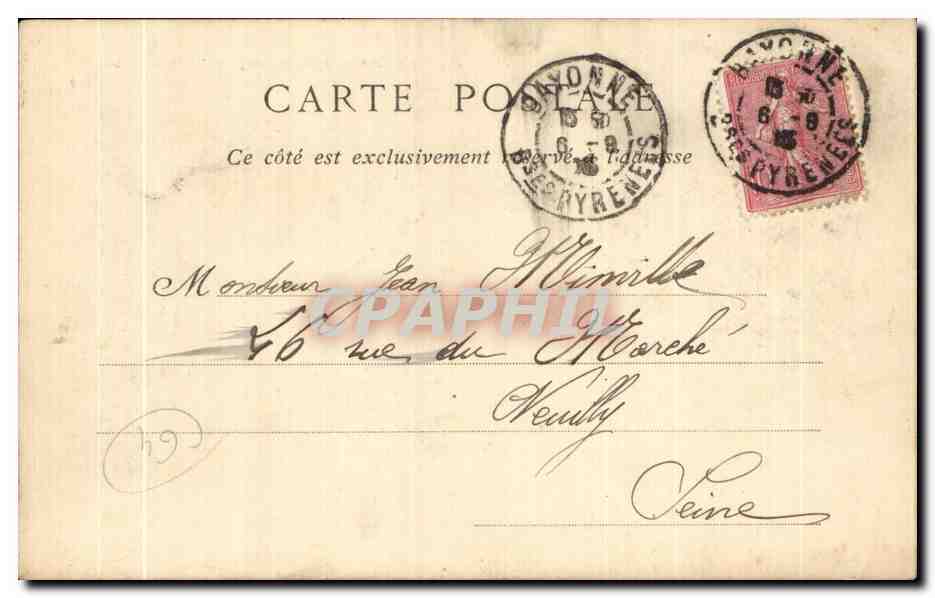 CARTE POSTALE
Ce côté est exclusivement réservé à l'adresse
BAYONNE
6 -9
BSES PYRENEES
BAYONNE
6 -9
BSES PYRENEES
Monsieur Jean Mimille
46 rue du Marché
Neuilly
Seine
64
CPAPHIL